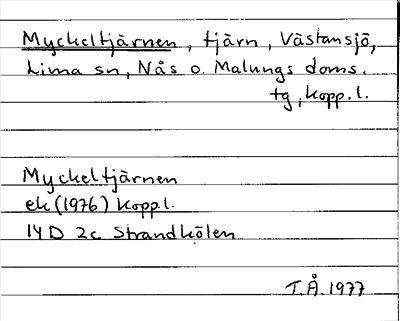 Myckeltjärnen, tjärn, Västansjö,
Lima sn, Nås o. Malungs doms.
tg, kopp. l.
Myckeltjärnen
ek (1976) kopp.l.
14 D 2c Strandkölen
T.Å. 1977